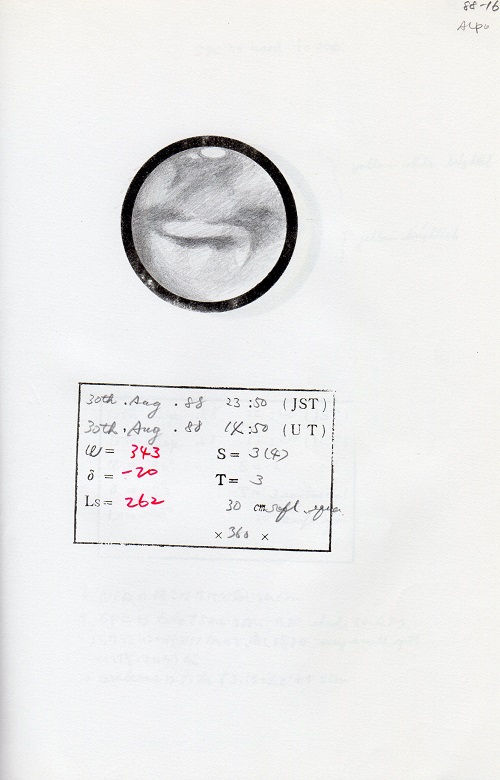 88-16
ALPO
30th . Aug . 88 23 : 50 (JST)
30th . Aug . 88 14 : 50 (UT)
ω = 343 S = 3(4)
δ = -20 T = 3
Ls = 262 30 cm
× 360 ×